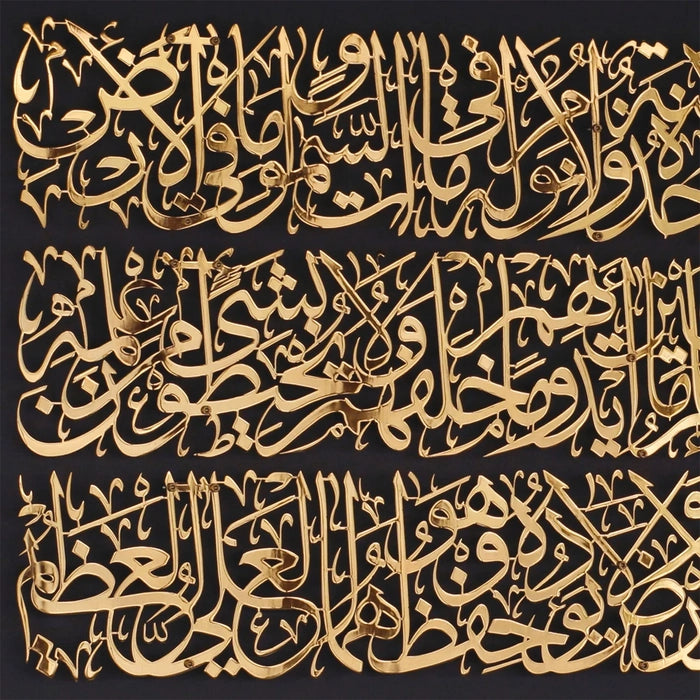 ولا نوم له ما في السموات وما في الأرض
بين أيديهم وما خلفهم ولا يحيطون بشيء من علمه
ولا يؤده حفظهما وهو العلي العظيم